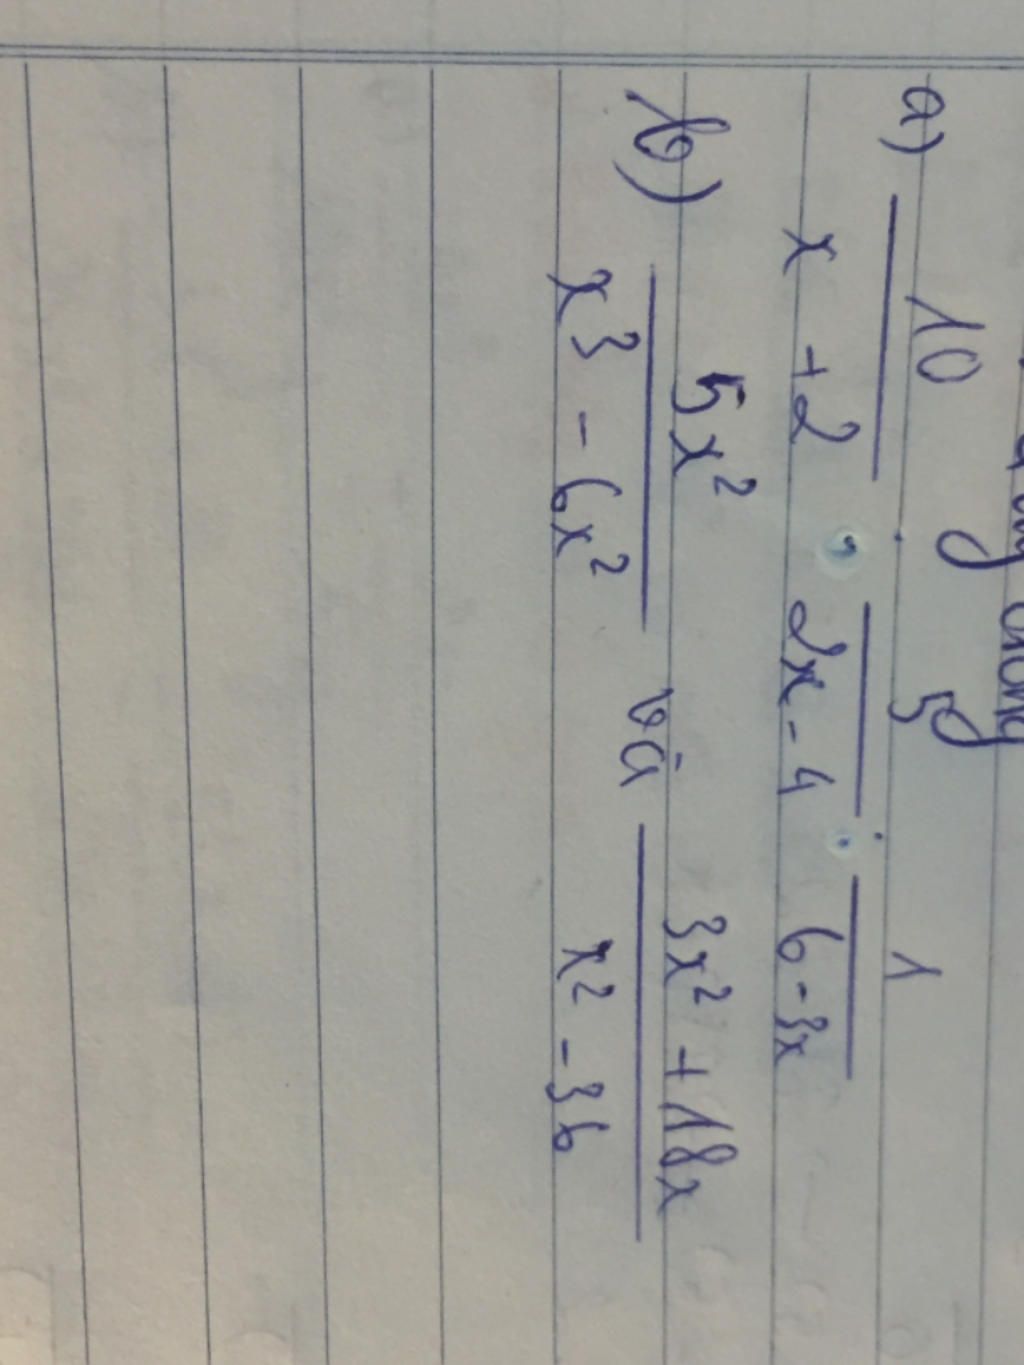 a) 10/(x + 2) ; 5/(2x - 4) ; 1/(6 - 3x)
b) 5x²/(x³ - 6x²) và (3x² + 18x)/(x² - 36)